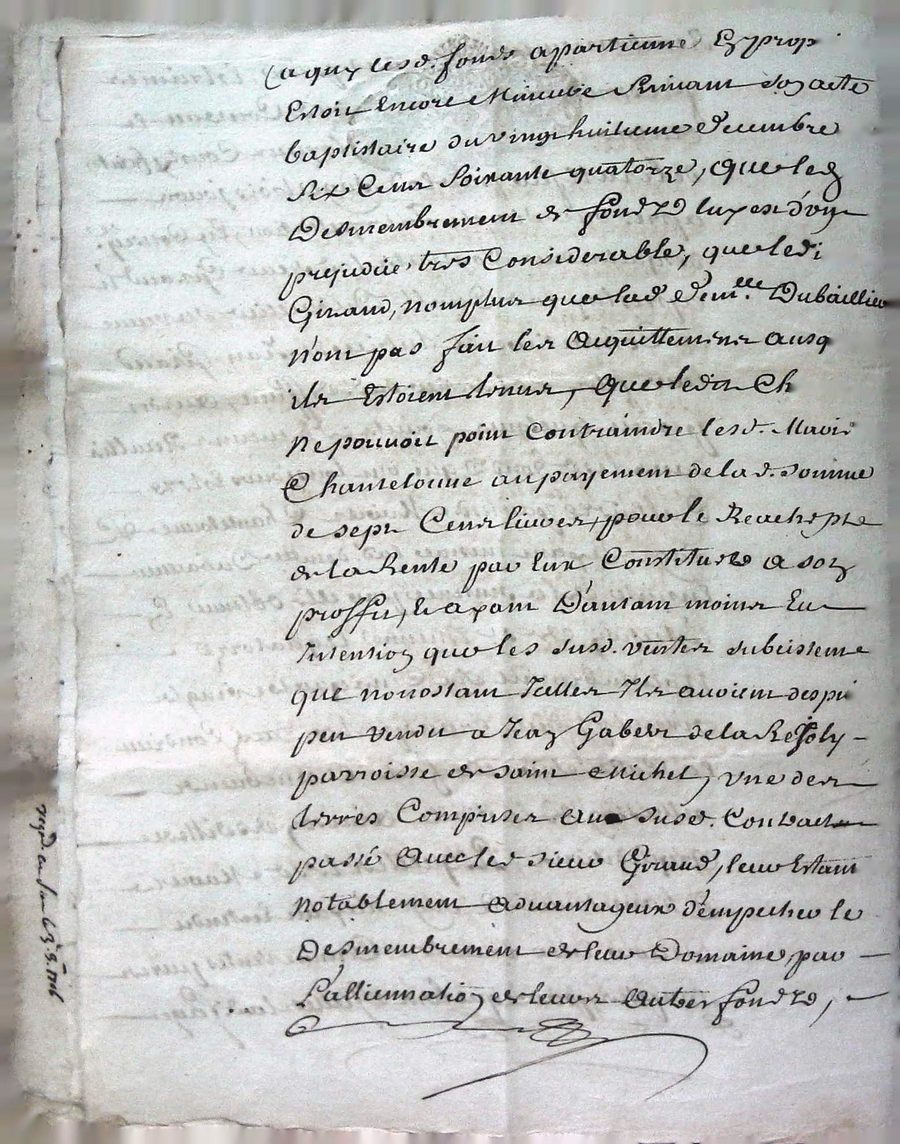 a quy lesd. fonds apartienne En prop
Estoit Encore Mineure Suivant son acte
baptistaire du vingt huitieme Decembre
Six Cens Soixante quatorze, que led
Desmembrement de fondz luy est d'un
prejudice tres Considerable, que ledi
Giraud, nomplus que lad Demlle. Dubaillieu
n'ont pas fait les Acquittemens ausq
ils Estoient tenus, que ledit Ch
ne pouvoit point Contraindre lesd. Marie
Chantelouue au payement de lad. somme
de sept Cens livres, pour le Reachepte
de la Rente par Eux Constituée a son
proffit, Et ayant D'autant moins Eu
Intention que les susd. ventes subcistent
que nonostant Icelles Ils avoient despui
peu vendu a Jean Gabert de la
parroisse de saint Michel, une des
terres Comprises au susd. Contract
passé Avec led sieur Giraud, leur Estant
notablement advantageux d'empecher le
Desmembrement de leur Domaine, par
L'allienation de leurs Autres fondz,